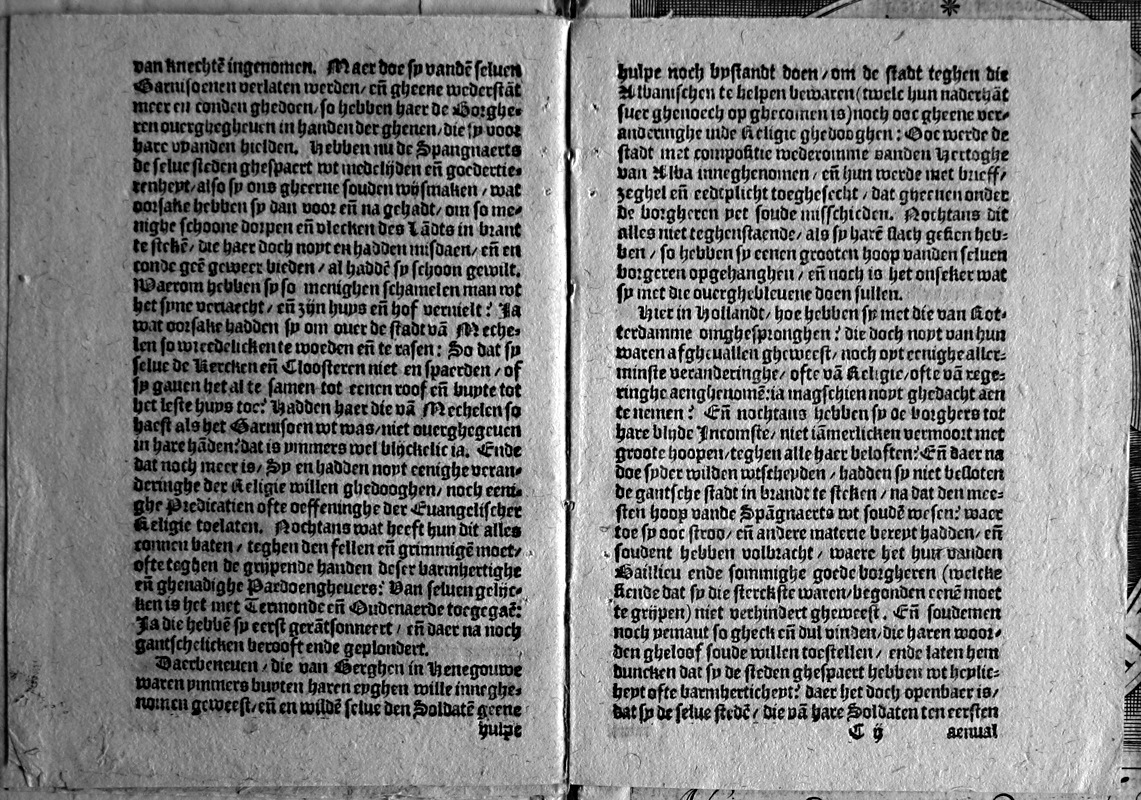 van knechtē ingenomen. Maer doe sy vandē seluen
Garnisoenen verlaten werden/ eñ gheene wederstāt
meer en conden ghedoen/ so hebben haer de Borghe-
ren ouerghegheuen in handen der ghenen/ die sy voor
hare vyanden hielden. Hebben nu de Spangnaerts
de selue steden ghespaert wt medelijden eñ goedertie-
renheyt/ also sy ons gheerne souden wijsmaken/ wat
oorsake hebben sy dan voor eñ na gehadt/ om so me-
nighe schoone dorpen eñ vlecken des Lādts in brant
te stekē/ die haer doch noyt en hadden misdaen/ eñ en
conde geē geweer bieden/ al haddē sy schoon gewilt.
Waerom hebben sy so menighen schamelen man wt
het syne veriaecht/ eñ zijn huys eñ hof vernielt? Ja
wat oorsake hadden sy om ouer de stadt vā Meche-
len so wreedelicken te woeden eñ te rasen: So dat sy
selue de Kercken eñ Cloosteren niet en spaerden/ of
sy gauen het al te samen tot eenen roof eñ buyte tot
het leste huys toe? Hadden haer die vā Mechelen so
haest als het Garnisoen wt was/ niet ouerghegeuen
in hare hāden? dat is ymmers wel blijckelic ia. Ende
dat noch meer is/ Sy en hadden noyt eenighe veran-
deringhe der Religie willen ghedooghen/ noch eeni-
ghe Predicatien ofte oeffeninghe der Euangelischer
Religie toelaten. Nochtans wat heeft hun dit alles
connen baten/ teghen den fellen eñ grimmigē moet/
ofte teghen de grijpende handen deser barmhertighe
eñ ghenadighe Pardoengheuers? Van seluen gelijc-
ken is het met Termonde eñ Oudenaerde toegegaē:
Ja die hebbē sy eerst gerātsonneert/ eñ daer na noch
gantschelicken berooft ende geplondert.
Daerbeneuen/ die van Berghen in Henegouwe
waren ymmers buyten haren eyghen wille inneghe-
nomen geweest/ eñ en wildē selue den Soldatē geene
hulpe
hulpe noch bystandt doen/ om de stadt teghen die
Albanischen te helpen bewaren (twelc hun naderhāt
suer ghenoech op ghecomen is) noch ooc gheene ver-
anderinghe inde Religie ghedooghen: Ooc werde de
stadt met compositie wederomme vanden Hertoghe
van Alba inneghenomen/ eñ hun werde met brieff/
zeghel eñ eedtplicht toeghesecht/ dat gheenen onder
de borgheren yet soude misschieden. Nochtans dit
alles niet teghenstaende/ als sy harē slach gesien heb-
ben/ so hebben sy eenen grooten hoop vanden seluen
borgeren opgehanghen/ eñ noch is het onseker wat
sy met die ouerghebleuene doen sullen.
Hier in Hollandt/ hoe hebben sy met die van Rot-
terdamme omghespronghen? die doch noyt van hun
waren afgheuallen gheweest/ noch oyt eenighe aller-
minste veranderinghe/ ofte vā Religie/ ofte vā rege-
ringhe aenghenomē: ia magschien noyt ghedacht aen
te nemen? Eñ nochtans hebben sy de borghers tot
hare blijde Incomste/ niet iāmerlicken vermoort met
groote hoopen/ teghen alle haer beloften? Eñ daer na
doe sy der wilden wtscheyden/ hadden sy niet besloten
de gantsche stadt in brandt te steken/ na dat den mee-
sten hoop vande Spāgnaerts wt soudē wesen? waer
toe sy ooc stroo/ eñ andere materie bereyt hadden/ eñ
soudent hebben volbracht/ waere het hun vanden
Baillieu ende sommighe goede borgheren (welcke
siende dat sy die sterckste waren/ begonden eenē moet
te grijpen) niet verhindert gheweest. Eñ soudemen
noch yemant so gheck eñ dul vinden/ die haren woor-
den gheloof soude willen toestellen/ ende laten hem
duncken dat sy de steden ghespaert hebben wt heylic-
heyt ofte barmherticheyt? daer het doch openbaer is/
dat sy de selue stedē/ die vā hare Soldaten ten eersten
C ij aenual